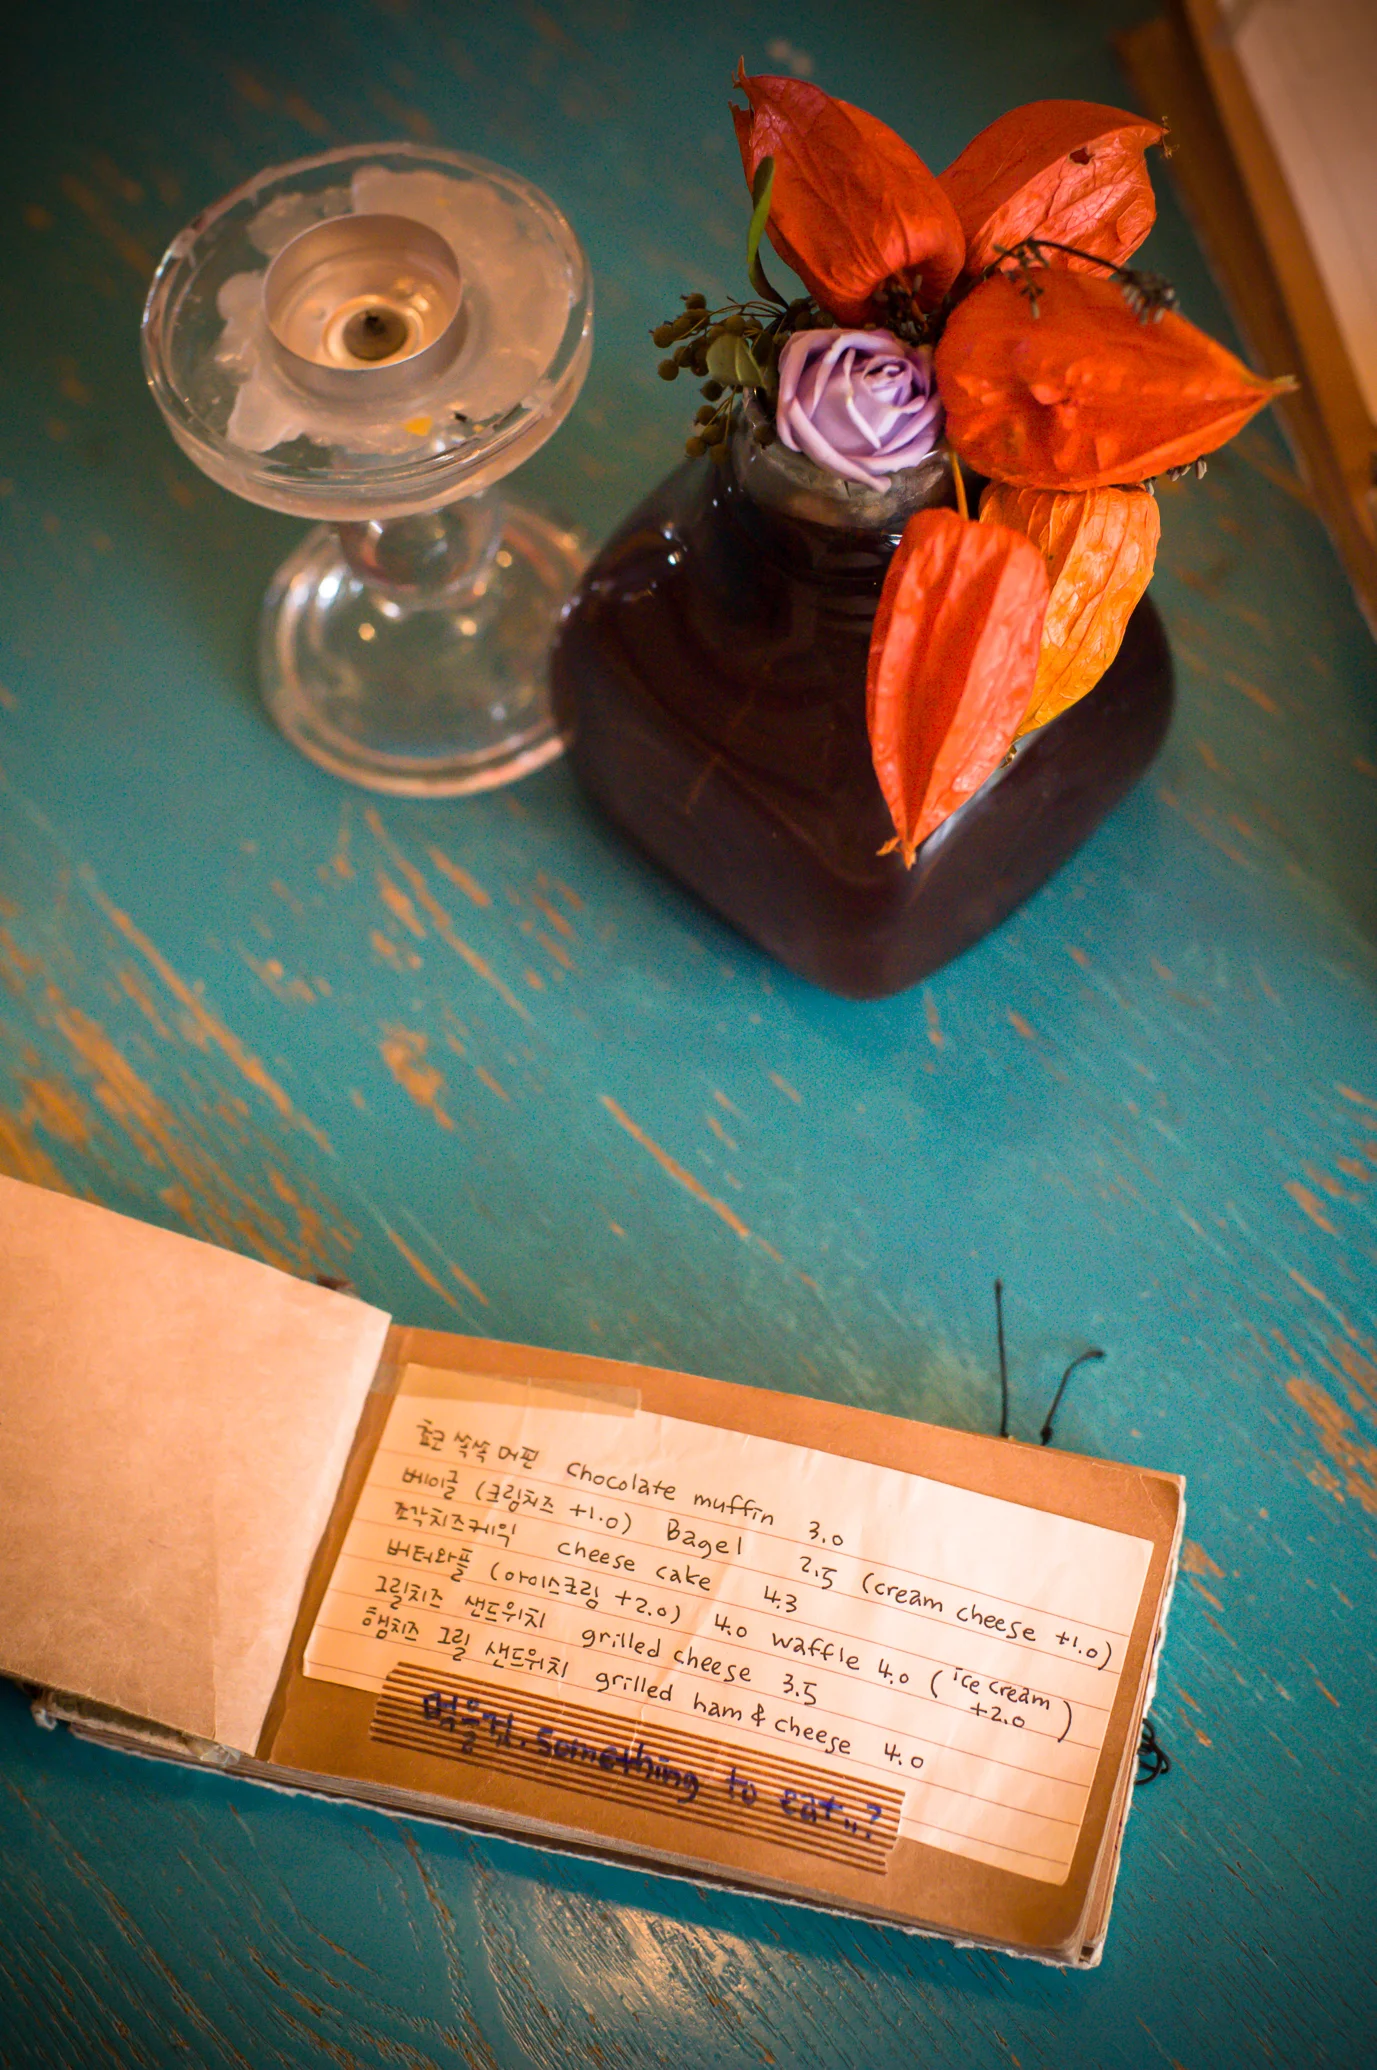 쵸코 쏙쏙 머핀 chocolate muffin 3.0
베이글 (크림치즈 +1.0) Bagel 2.5 (cream cheese +1.0)
조각치즈케익 cheese cake 4.3
버터와플 (아이스크림 +2.0) 4.0 waffle 4.0 (ice cream +2.0)
그릴치즈 샌드위치 grilled cheese 3.5
햄치즈 그릴 샌드위치 grilled ham & cheese 4.0
먹을거. Something to eat..?